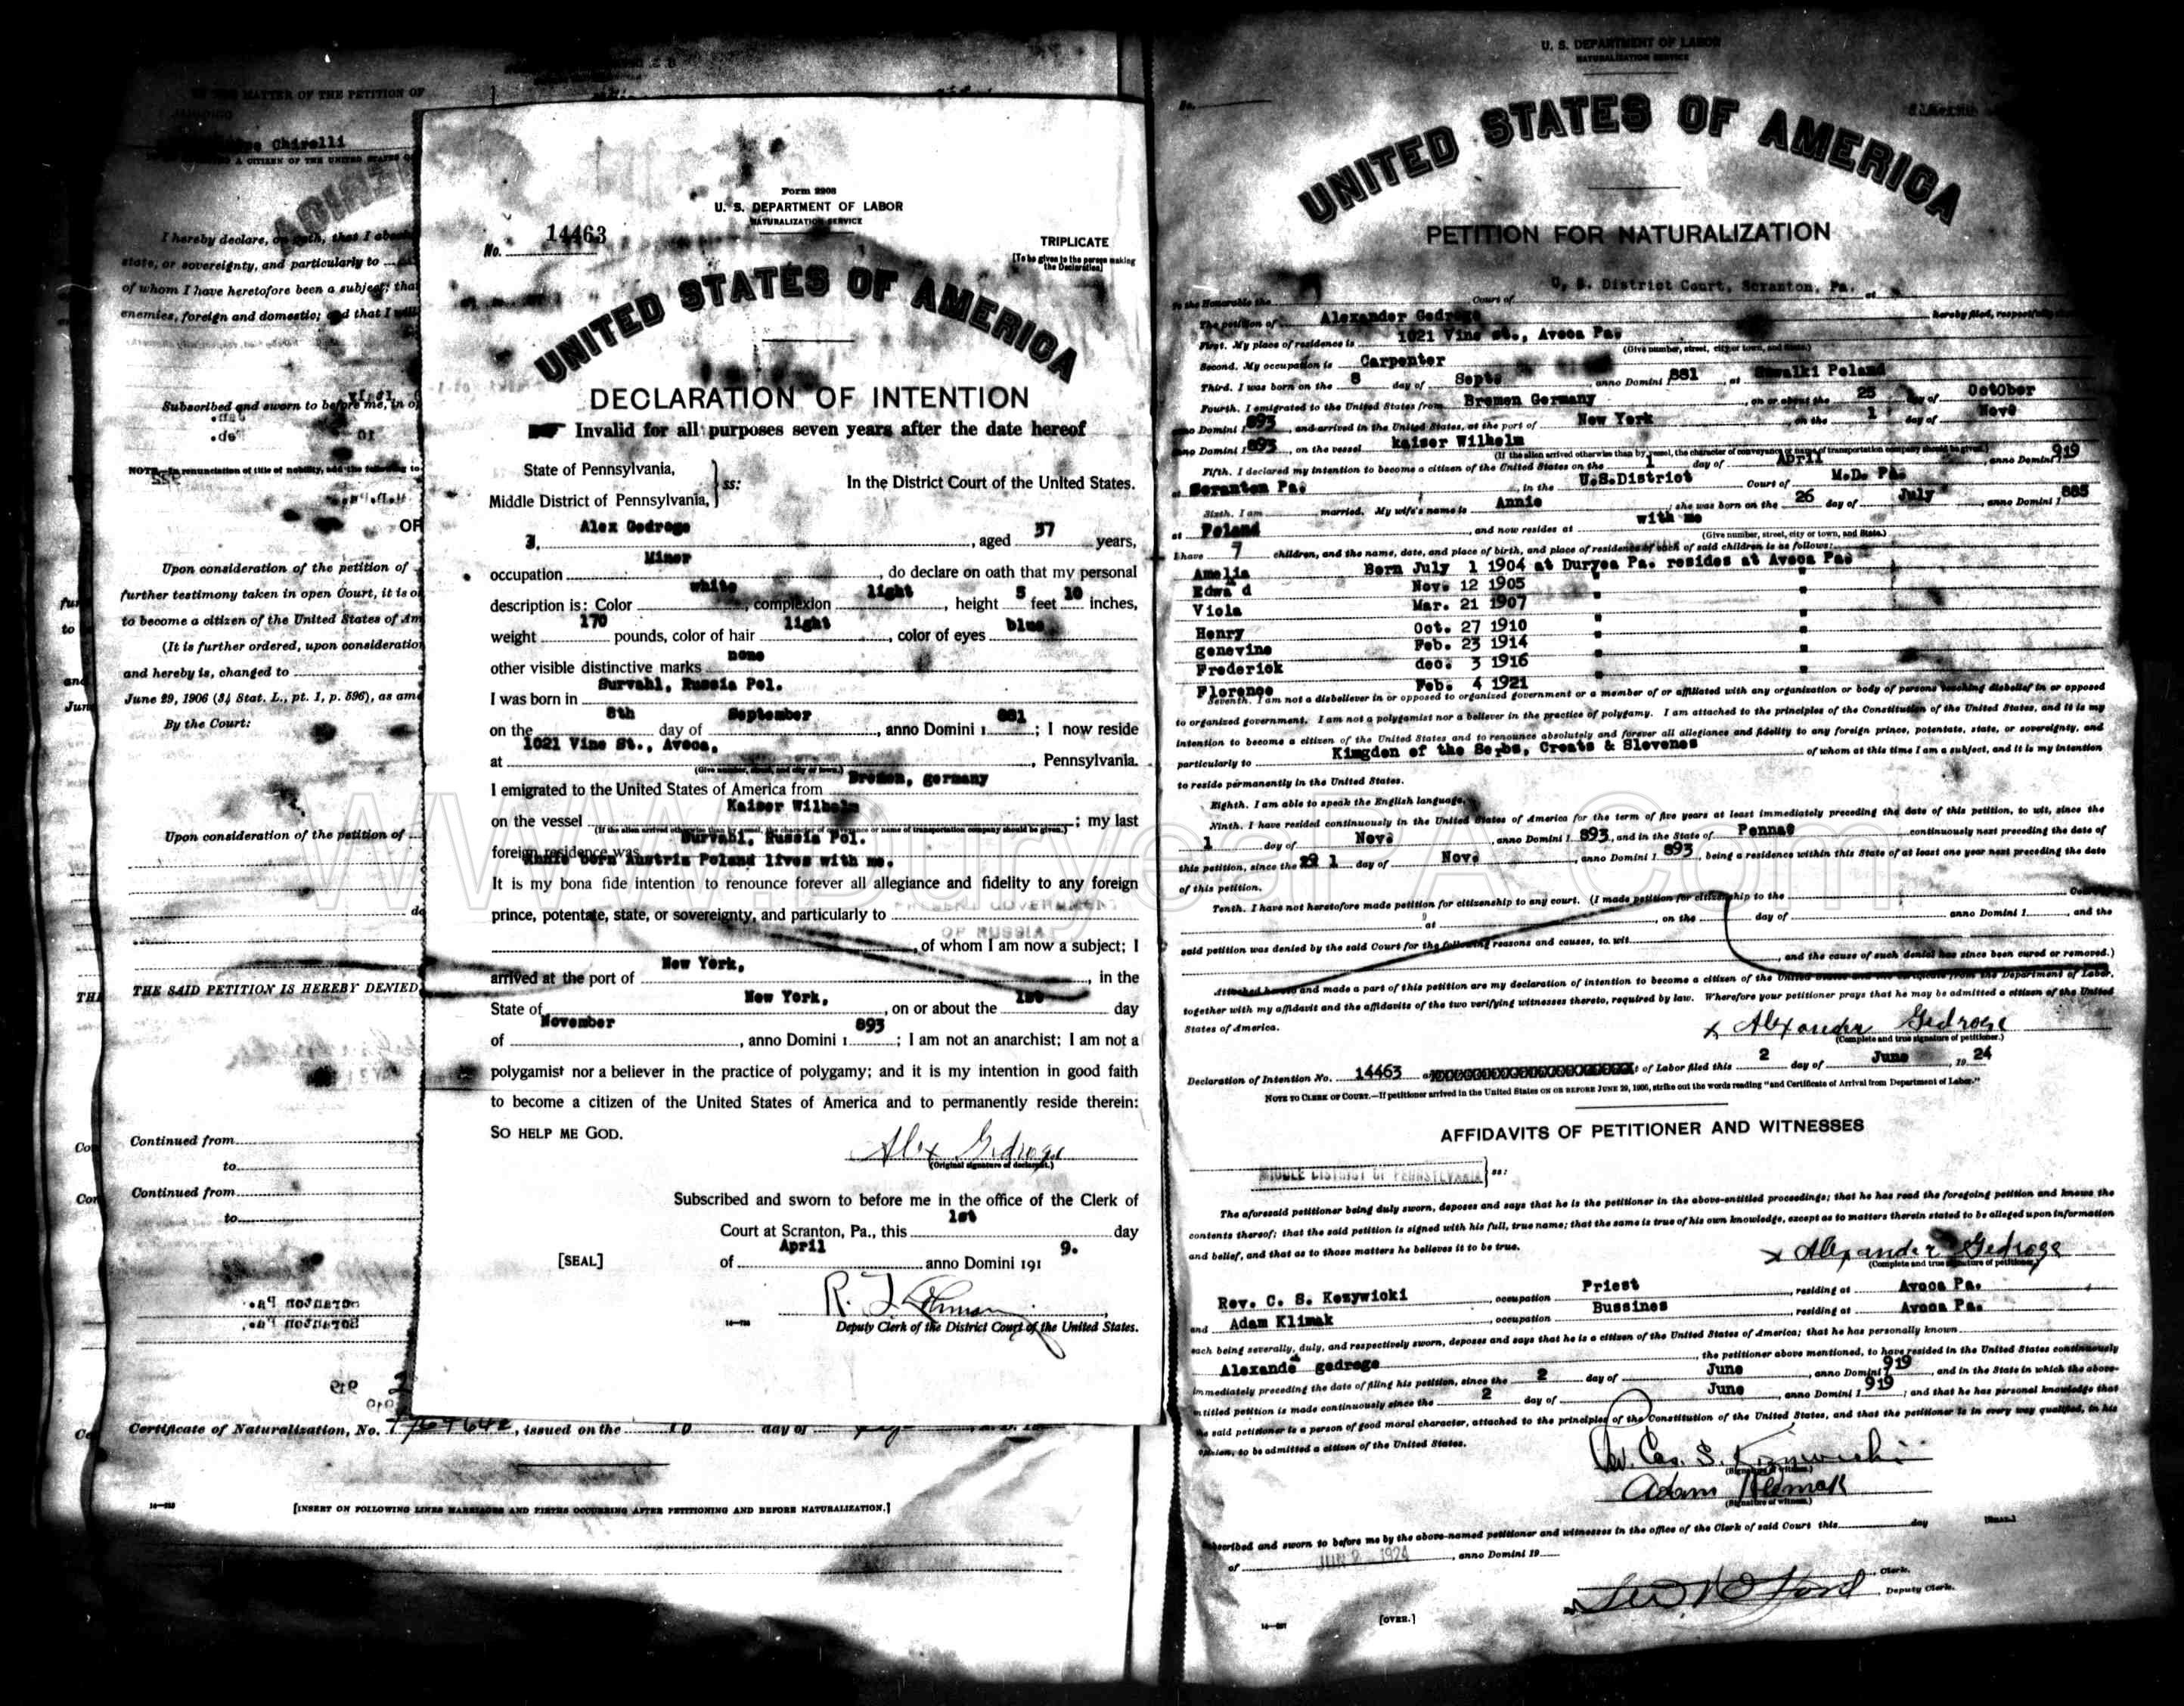 MATTER OF THE PETITION OF
Chirelli
A CITIZEN OF THE UNITED STATES
I hereby declare, on oath, that I
state, or sovereignty, and particularly to
of whom I have heretofore been a subject; that
enemies, foreign and domestic; and that I will
Subscribed and sworn to before me, in
renunciation of title of nobility, add the following to
OR
Upon consideration of the petition of
further testimony taken in open Court, it is
to become a citizen of the United States of Am
(It is further ordered, upon consideration
and hereby is, changed to
June 29, 1906 (34 Stat. L., pt. 1, p. 596), as
By the Court:
Upon consideration of the petition of
THE SAID PETITION IS HEREBY DENIED
Continued from
to
Continued from
to
Certificate of Naturalization, No. , issued on the 10 day of
[INSERT ON FOLLOWING LINES MARRIAGES AND BIRTHS OCCURRING AFTER PETITIONING AND BEFORE NATURALIZATION.]
Form 2203
U. S. DEPARTMENT OF LABOR
NATURALIZATION SERVICE
No. 14463
TRIPLICATE
[To be given to the person making
the Declaration]
UNITED STATES OF AMERICA
DECLARATION OF INTENTION
Invalid for all purposes seven years after the date hereof
State of Pennsylvania,
Middle District of Pennsylvania, ss: In the District Court of the United States.
I, Alex Gedroge, aged 37 years,
occupation Miner, do declare on oath that my personal
description is: Color white, complexion light, height 5 feet 10 inches,
weight 170 pounds, color of hair light, color of eyes blue
other visible distinctive marks none
I was born in Survahl, Russia Pol.
on the 8th day of September, anno Domini 1 881; I now reside
at 1021 Vine St., Avoca, Pennsylvania.
(Give number, street, and city or town.)
I emigrated to the United States of America from Bremen, germany
on the vessel Kaiser Wilhelm; my last
(If the alien arrived otherwise than by vessel, the character of conveyance or name of transportation company should be given.)
foreign residence was Survahl, Russia Pol.
Annie born Austria Poland lives with me.
It is my bona fide intention to renounce forever all allegiance and fidelity to any foreign
prince, potentate, state, or sovereignty, and particularly to PRESENT GOVERNMENT
OF RUSSIA, of whom I am now a subject; I
arrived at the port of New York, in the
State of New York, on or about the 1st day
of November, anno Domini 1 893; I am not an anarchist; I am not a
polygamist nor a believer in the practice of polygamy; and it is my intention in good faith
to become a citizen of the United States of America and to permanently reside therein:
SO HELP ME GOD.
Alex Gedroge
(Original signature of declarant.)
Subscribed and sworn to before me in the office of the Clerk of
Court at Scranton, Pa., this 1st day
[SEAL] of April anno Domini 191 9.
Deputy Clerk of the District Court of the United States.
U. S. DEPARTMENT OF LABOR
NATURALIZATION SERVICE
No.
UNITED STATES OF AMERICA
PETITION FOR NATURALIZATION
To the Honorable the Court of U. S. District Court, Scranton, Pa. at
The petition of Alexander Gedroge hereby filed, respectfully
First. My place of residence is 1021 Vine st., Avoca Pa.
(Give number, street, city or town, and State.)
Second. My occupation is Carpenter
Third. I was born on the 8 day of Septe anno Domini 1 881, at Suwalki Poland
Fourth. I emigrated to the United States from Bremen Germany, on or about the 25 day of October
anno Domini 1 893, and arrived in the United States, at the port of New York, on the 1 day of Nove
anno Domini 1 893, on the vessel kaiser Wilhelm
(If the alien arrived otherwise than by vessel, the character of conveyance or name of transportation company should be given.)
Fifth. I declared my intention to become a citizen of the United States on the 1 day of April, anno Domini 919
at Scranton Pa., in the U.S.District Court of M.D. Pa.
Sixth. I am married. My wife's name is Annie; she was born on the 26 day of July, anno Domini 1 885
at Poland, and now resides at with me
(Give number, street, city or town, and State.)
I have 7 children, and the name, date, and place of birth, and place of residence of each of said children is as follows:
Amelia Born July 1 1904 at Duryea Pa. resides at Avoca Pa.
Edwa d Nov. 12 1905 " "
Viola Mar. 21 1907 " "
Henry Oct. 27 1910 " "
genevine Feb. 23 1914 " "
Frederick dec. 3 1916 " "
Florence Feb. 4 1921
Seventh. I am not a disbeliever in or opposed to organized government or a member of or affiliated with any organization or body of persons teaching disbelief in or opposed
to organized government. I am not a polygamist nor a believer in the practice of polygamy. I am attached to the principles of the Constitution of the United States, and it is my
intention to become a citizen of the United States and to renounce absolutely and forever all allegiance and fidelity to any foreign prince, potentate, state, or sovereignty, and
particularly to Kimgden of the Serbs, Croats & Slovenes of whom at this time I am a subject, and it is my intention
to reside permanently in the United States.
Eighth. I am able to speak the English language.
Ninth. I have resided continuously in the United States of America for the term of five years at least immediately preceding the date of this petition, to wit, since the
1 day of Nove, anno Domini 1 893, and in the State of Penna. continuously next preceding the date of
this petition, since the 1 day of Nove, anno Domini 1 893, being a residence within this State of at least one year next preceding the date
of this petition.
Tenth. I have not heretofore made petition for citizenship to any court. (I made petition for citizenship to the Court
at, on the day of anno Domini 1, and the
said petition was denied by the said Court for the following reasons and causes, to wit
, and the cause of such denial has since been cured or removed.)
Attached hereto and made a part of this petition are my declaration of intention to become a citizen of the United States and the certificate from the Department of Labor,
together with my affidavit and the affidavits of the two verifying witnesses thereto, required by law. Wherefore your petitioner prays that he may be admitted a citizen of the United
States of America.
x Alexander Gedroge
(Complete and true signature of petitioner.)
Declaration of Intention No. 14463 of Labor filed this 2 day of June, 19 24
NOTE TO CLERK OF COURT.—If petitioner arrived in the United States ON OR BEFORE JUNE 29, 1906, strike out the words reading "and Certificate of Arrival from Department of Labor."
AFFIDAVITS OF PETITIONER AND WITNESSES
MIDDLE DISTRICT OF PENNSYLVANIA ss:
The aforesaid petitioner being duly sworn, deposes and says that he is the petitioner in the above-entitled proceedings; that he has read the foregoing petition and knows the
contents thereof; that the said petition is signed with his full, true name; that the same is true of his own knowledge, except as to matters therein stated to be alleged upon information
and belief, and that as to those matters he believes it to be true.
x Alexander Gedroge
(Complete and true signature of petitioner.)
Rev. C. S. Kozywicki occupation Priest, residing at Avoca Pa.
and Adam Klimak, occupation Bussines, residing at Avoca Pa.
each being severally, duly, and respectively sworn, deposes and says that he is a citizen of the United States of America; that he has personally known
Alexande gedroge, the petitioner above mentioned, to have resided in the United States continuously
immediately preceding the date of filing his petition, since the 2 day of June, anno Domini 919, and in the State in which the above-
entitled petition is made continuously since the 2 day of June, anno Domini 1 919; and that he has personal knowledge that
the said petitioner is a person of good moral character, attached to the principles of the Constitution of the United States, and that the petitioner is in every way qualified, in his
opinion, to be admitted a citizen of the United States.
(Signature of witness.)
Adam Klimak
(Signature of witness.)
Subscribed and sworn to before me by the above-named petitioner and witnesses in the office of the Clerk of said Court this day [SEAL.]
of JUN 2 1924, anno Domini 19
Clerk.
Deputy Clerk.
[OVER.]
www.DuryeaPA.com